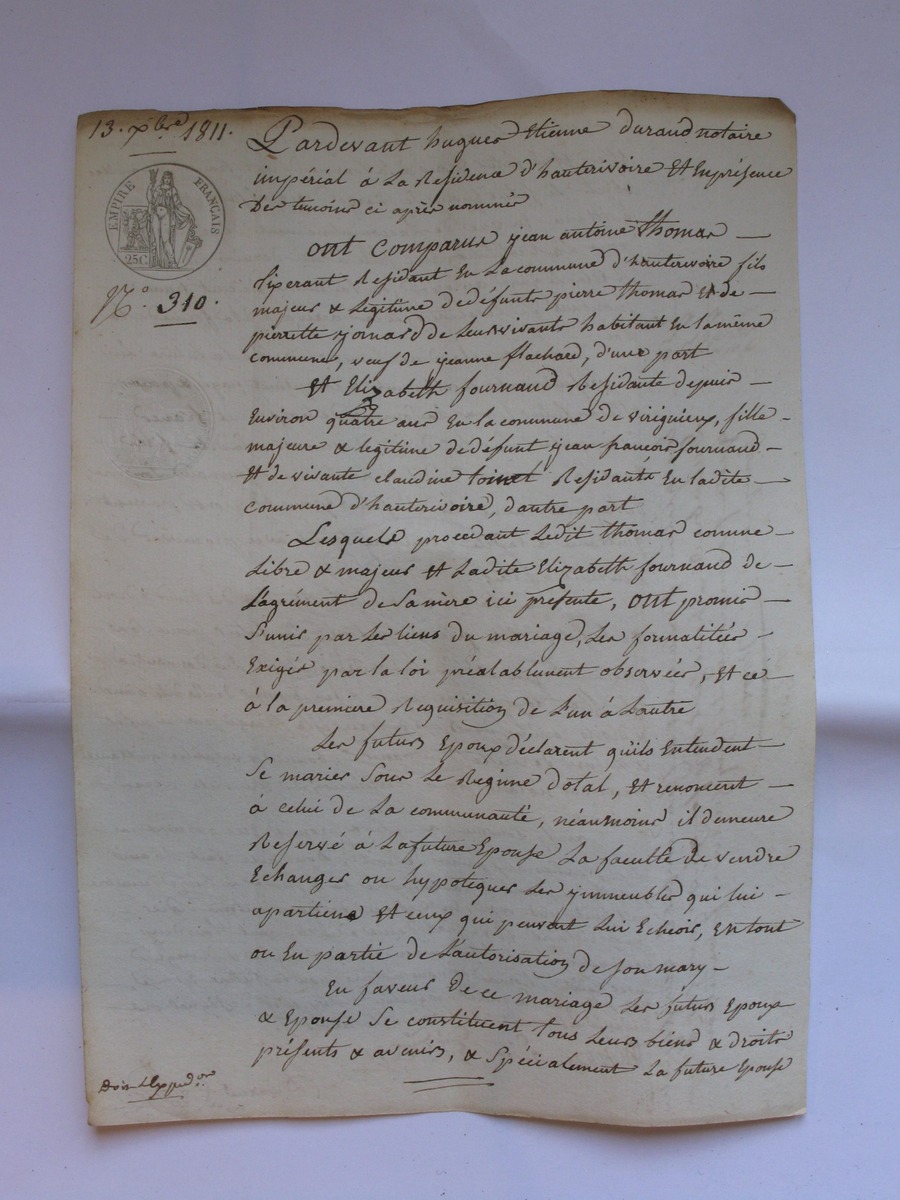 13. xbre 1811.
EMPIRE FRANÇAIS
25C
N.o 310.
Pardevant hugues Etienne durand notaire
impérial à La Residence d'hauterivoire Et En présence
Des temoins ci après nommés
ont comparus jean antoine thomas
Residant En La commune d'hauterivoire fils
majeur & Légitime de défunts pierre thomas Et de
pierrette jomard de Leurs vivants habitant En la même
commune, veuf de jeanne flachard, d'une part
Et Elizabeth fournand Residante depuis
Environ quatre ans En la commune de virigneux, fille
majeure & legitime de défunt jean francois fournand
Et de vivante claudine Residante En ladite
commune d'hauterivoire, d'autre part
Lesquels procedant Ledit thomas comme
Libre & majeur Et Ladite Elizabeth fournand de
L'agrément de Sa mère ici présente, ont promis
S'unir par Les liens du mariage, Les formalitées
Exigés par la loi préalablement observées, Et ce
à la premiere Requisition de L'un à Lautre
Les futurs Epoux déclarent qu'ils Entendent
Se marier Sous Le Regime dotal, Et renoncent
à celui de La communauté, néanmoins il demeure
Reservé à La future Epouse La faculté De vendre
Echanger ou hypotequer Les ymmeubles qui lui
apartiene Et ceux qui peuvent Lui Echeoir, En tout
ou En partie de L'autorisation de Son mary
En faveur De ce mariage Les futurs Epoux
& Epouse Se constituent tous Leurs biens & droits
présents & avenirs, & Spécialement La future Epouse